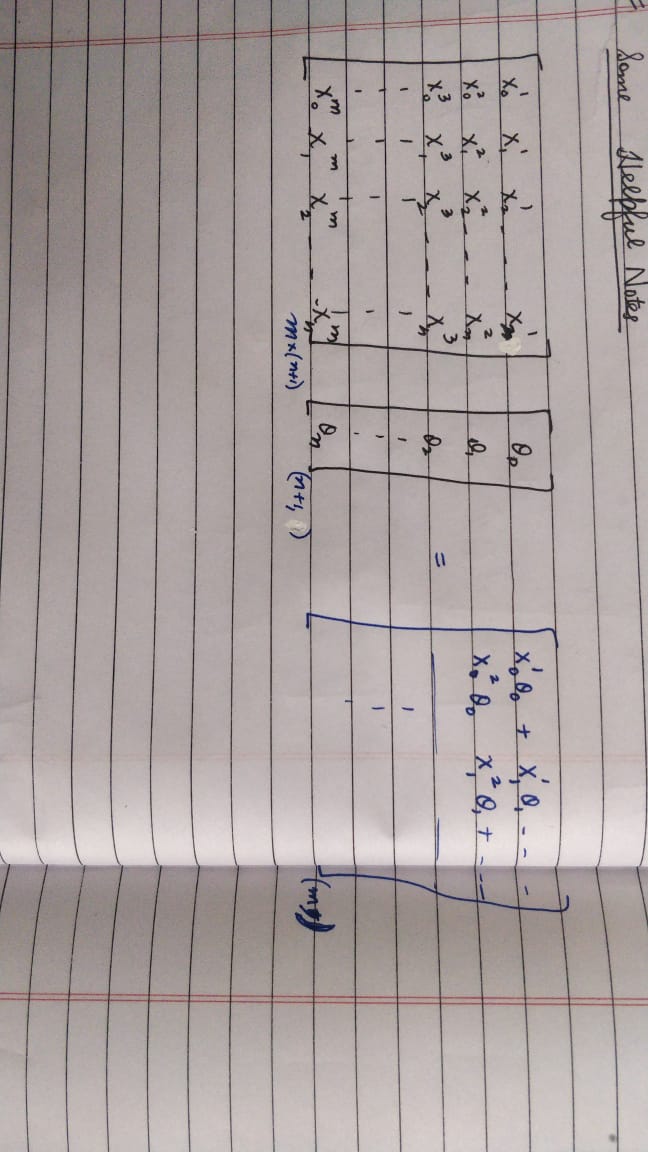 Some Helpful Notes
x₀¹ x₁¹ x₂¹ - - - xₙ¹
x₀² x₁² x₂² - - - xₙ²
x₀³ x₁³ x₂³ - - - xₙ³
x₀ᵐ x₁ᵐ x₂ᵐ - - - xₙᵐ
m×(n+1)
θ₀
θ₁
θ₂
θₙ
(n+1,
=
x₀¹θ₀ + x₁¹θ₁ - - -
x₀²θ₀ x₁²θ₁ + - - -